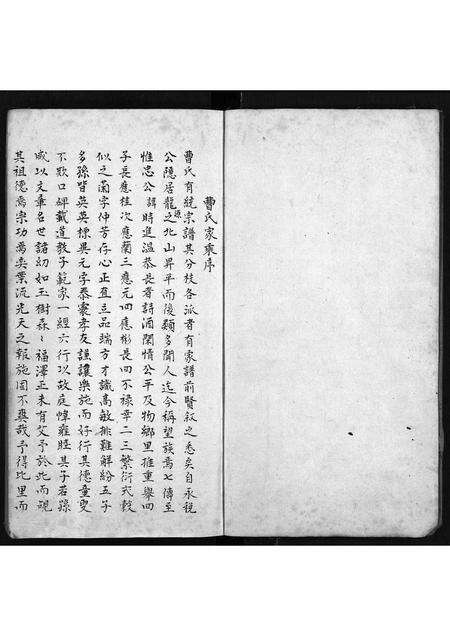 曹氏家乘序
曹氏有統宗譜其分枝各派者有家譜前賢叙之悉矣自承税
公隱居龍源之北山昇平而後類多聞人迄今稱望族焉七傳至
惟忠公諱時進温恭長者詩酒閑情公平及物鄉里推重舉四
子長應桂次應蘭三應元四應彬長四不祿幸二三繁衍式穀
似之蘭字仲芳存心正直立品端方才識高敏排難解紛五子
多孫皆英英標異元字泰寰孝友謹讓樂施而好行其德童叟
不欺口碑載道教子範家一經六行以故庭幃雍睦其子若孫
咸以文章名世諸幼如玉樹森々福澤正未有艾予於此而覘
其祖德為宗功為奕業流光天之報施固不爽哉予得比里而